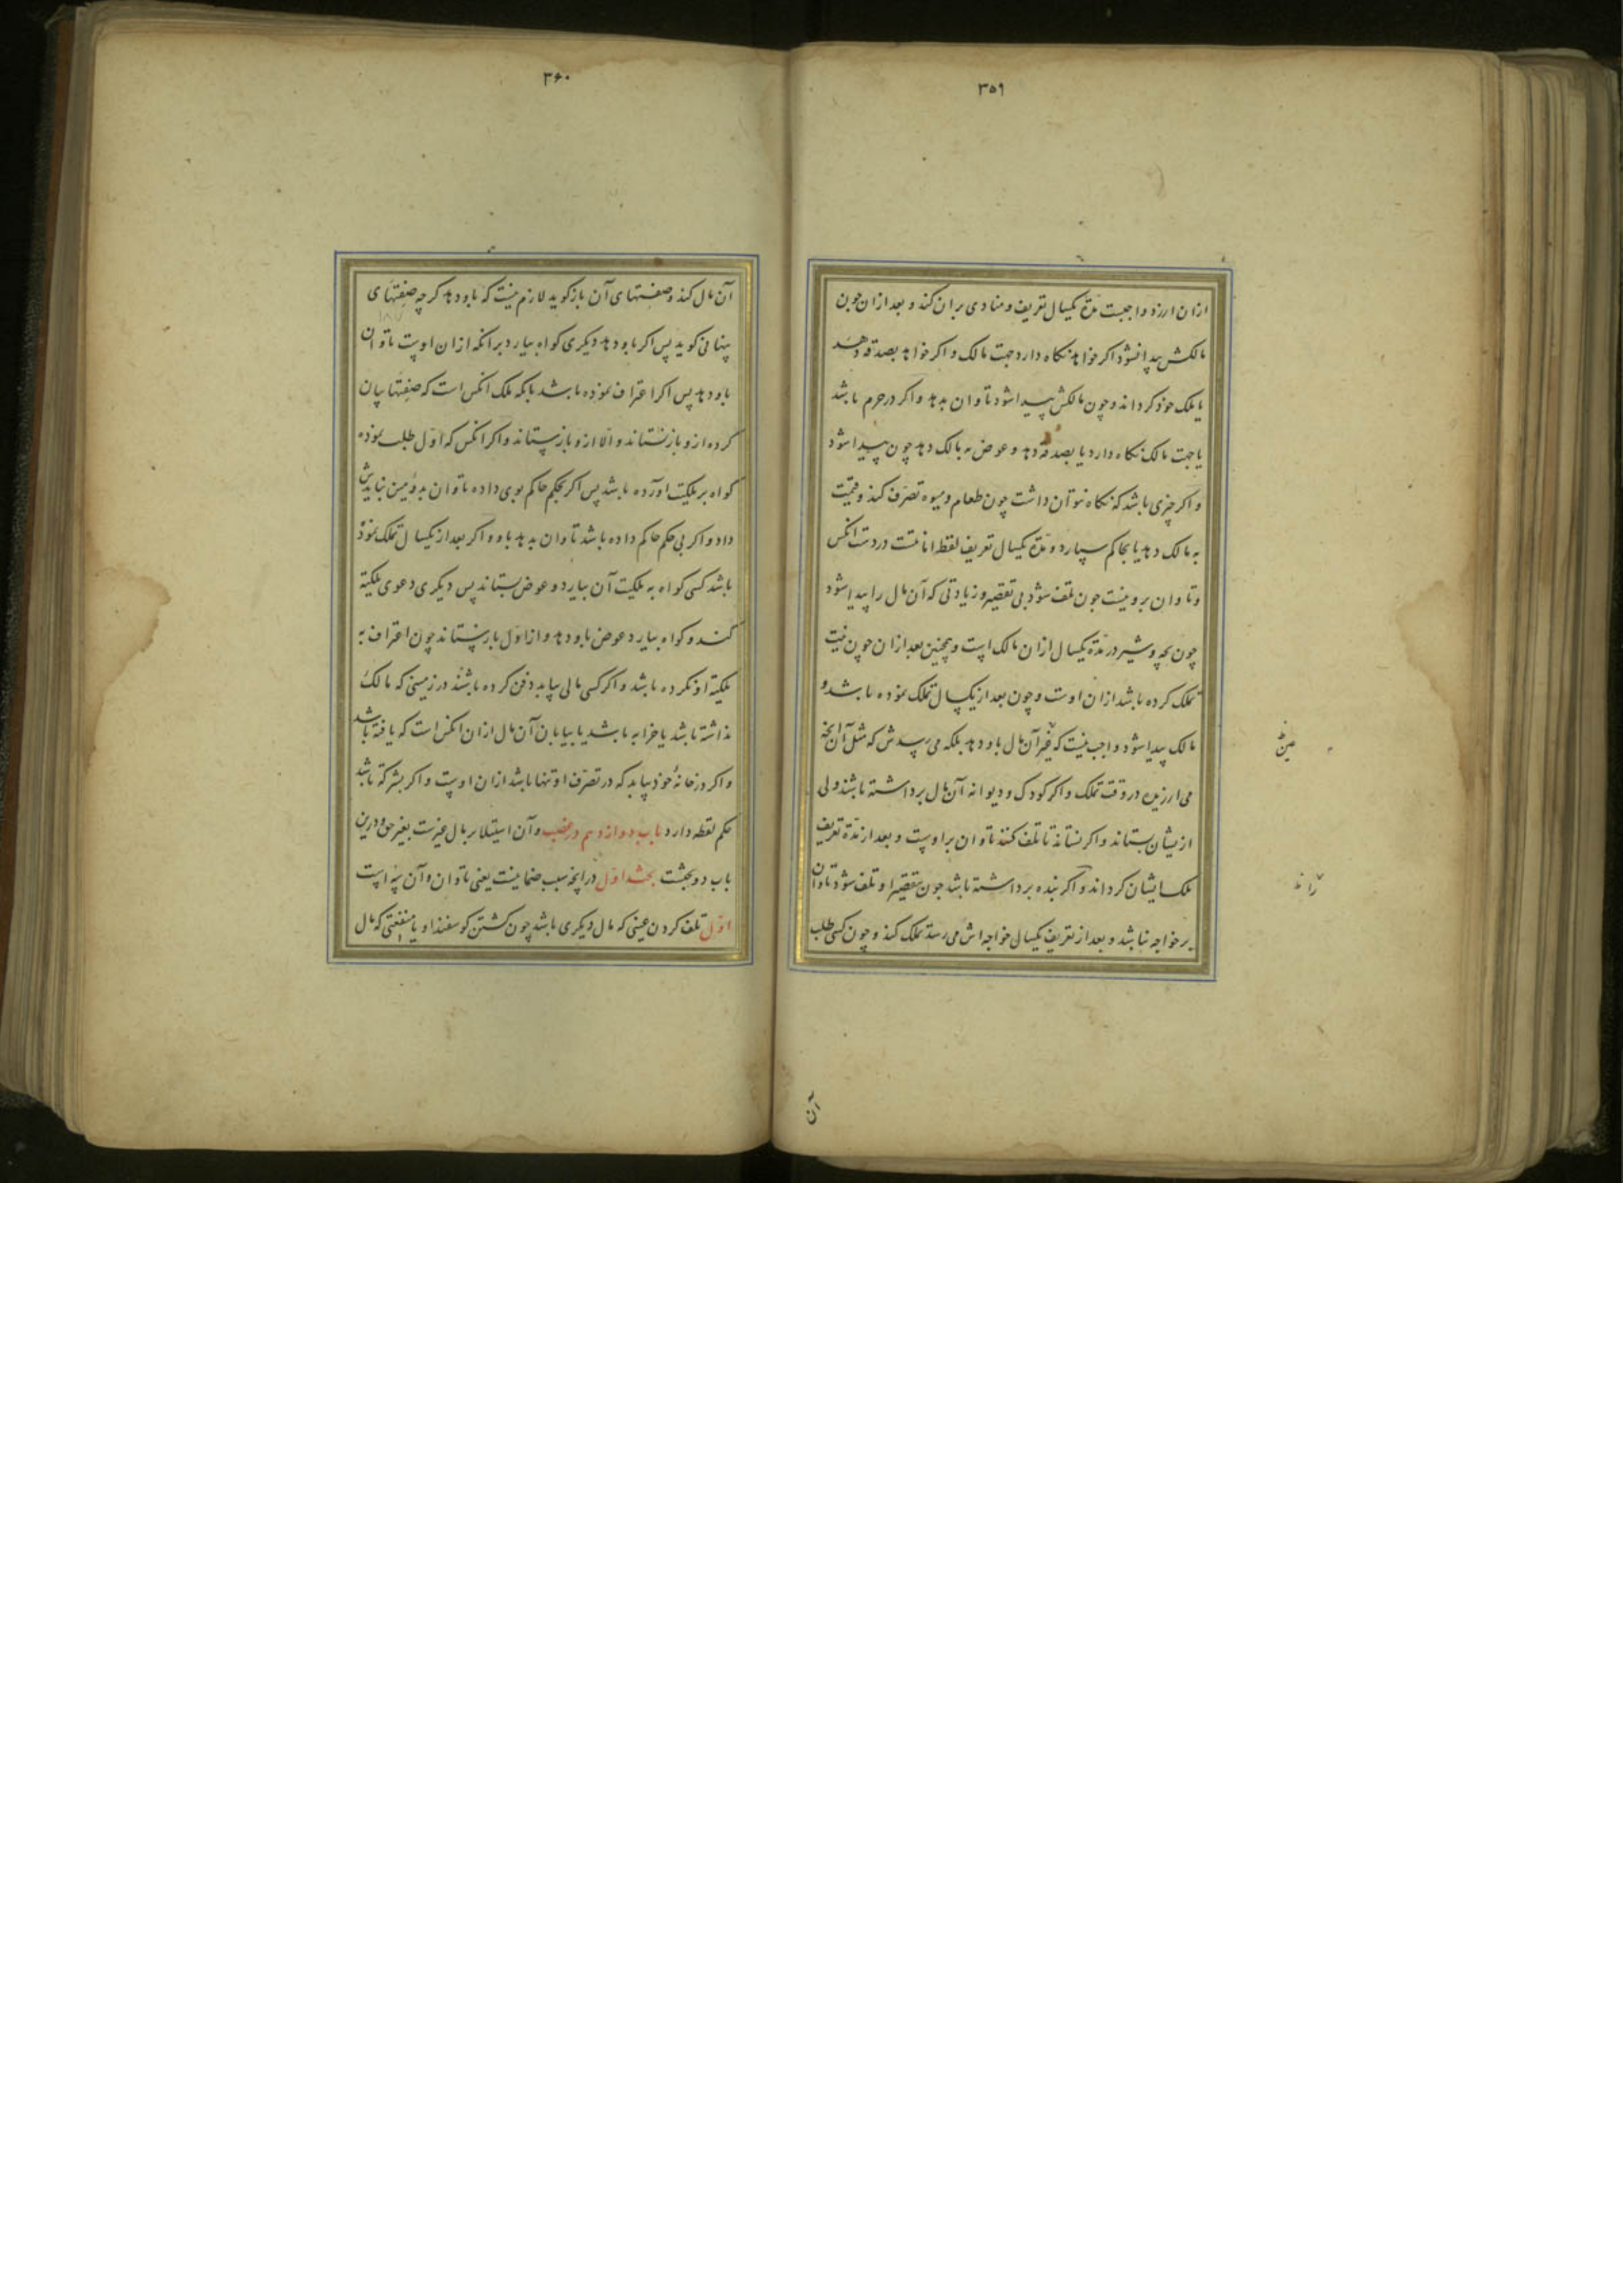 ۳۵۹
ازان ارزد واجبست مدّة یکسال تعریف و منادی بران کند و بعد ازان چون
مالکش پیدا نشود اکر خواهد نکاه دارد جهت مالک و اکر خواهد بصدقه دهد
یا ملک خود کرداند و چون مالکش پیدا شود تاوان بدهد و اکر در حرم باشد
یا جهت مالک نکاه دارد یا بصدقه دهد و عوض به مالک دهد چون پیدا شود
و اکر چیزی باشد که نکاه نتوان داشت چون طعام و میوه تصرّف کند و قیمت
به مالک دهد یا بحاکم سپارد و مدّة یکسال تعریف لقطه امانتست در دست انکس
و تاوان برو نیست چون تلف شود بی تقصیر و زیادتی که آن مال را پیدا شود
چون بچه و شیر در مدّة یکسال ازان مالک است و همچنین بعد ازان چون نیت
تملک کرده باشد ازان اوست و چون بعد از یکسال تملک نموده باشد و
مالک پیدا شود واجب نیست که آن مال باو دهد بلکه می رسدش که مثل آن یا آنچه
می ارزیده در وقت تملک و اکر کودک و دیوانه آن مال برداشته باشند ولی
ازیشان بستاند و اکر نستاند تا تلف کنند تاوان بر اوست و بعد از مدّة تعریف
ملک ایشان کرداند و اکر بنده برداشته باشد چون بتقصیر او تلف شود تاوان
بر خواجه نباشد و بعد از تعریف یکسال خواجه اش می رسد تملک کند و چون کسی طلب
آن
۳۶۰
آن مال کند و صفتهای آن باز کوید لازم نیست که باو دهد کرچه صفتهای
پنهانی کوید پس اکر باو دهد دیکری کواه بیارد برانکه ازان اوست تاوان
باو دهد پس اکر اعتراف نموده باشد بانکه ملک انکس است که صفتها بیان
کرده ازو باز نستاند و الّا ازو باز ستاند و اکر انکس که اوّل طلب نموده
کواه بر ملکیت آورده باشد پس اکر بحکم حاکم بوی داده تاوان بدومین نبایدش
داد و اکر بی حکم حاکم داده باشد تاوان بدهد باو و اکر بعد از یکسال تملک نموده
باشد کسی کواه به ملکیت آن بیارد و عوض بستاند پس دیکری دعوی ملکیة
کند و کواه بیارد عوض باو دهد و از اوّل باز ستاند چون اعتراف به
ملکیة او نکرده باشد و اکر کسی مالی بیابد دفن کرده باشند در زمینی که مالک
نداشته باشد یا خرابه باشد یا بیابان آن مال ازان انکس است که یافته باشد
و اکر در خانهٔ خود بیابد که در تصرّف او تنها باشد ازان اوست و اکر بشرکة باشد
حکم لقطه دارد باب دوازدهم در غصب و آن استیلا بر مال غیرست بغیر حق و درین
باب دو بحثست بحث اوّل در آنچه سبب ضمانیست یعنی تاوان و آن سه است
اوّل تلف کردن عینی که مال دیکری باشد چون کشتن کوسفند او یا منفعتی که مال